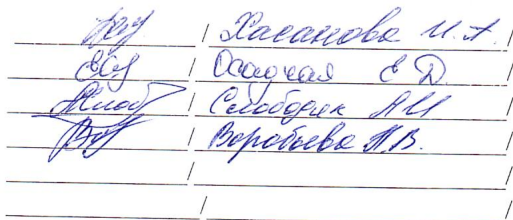 / Хасанова И. А. /
/ Осадчая Е Д /
/ Слободяк А И /
/ Воробьева Н.В. /
/ /
/